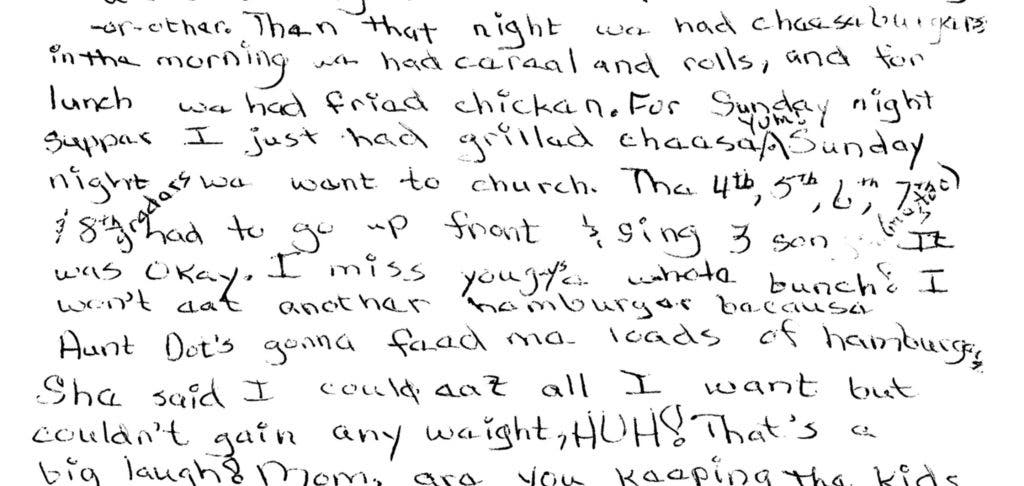 -or-other. Then that night we had cheeseburgers
in the morning we had cereal and rolls, and for
lunch we had fried chicken. For Sunday night
supper I just had grilled cheese. Yum! Sunday
night we went to church. The 4th, 5th, 6th, 7th
& 8th graders had to go up front & sing 3 son
It
was okay. I miss you guys a whole bunch! I
won't eat another hamburger because
Aunt Dot's gonna feed me loads of hamburgers
She said I could eat all I want but
couldn't gain any weight, HUH! That's a
big laugh! Mom, are you keeping the kids